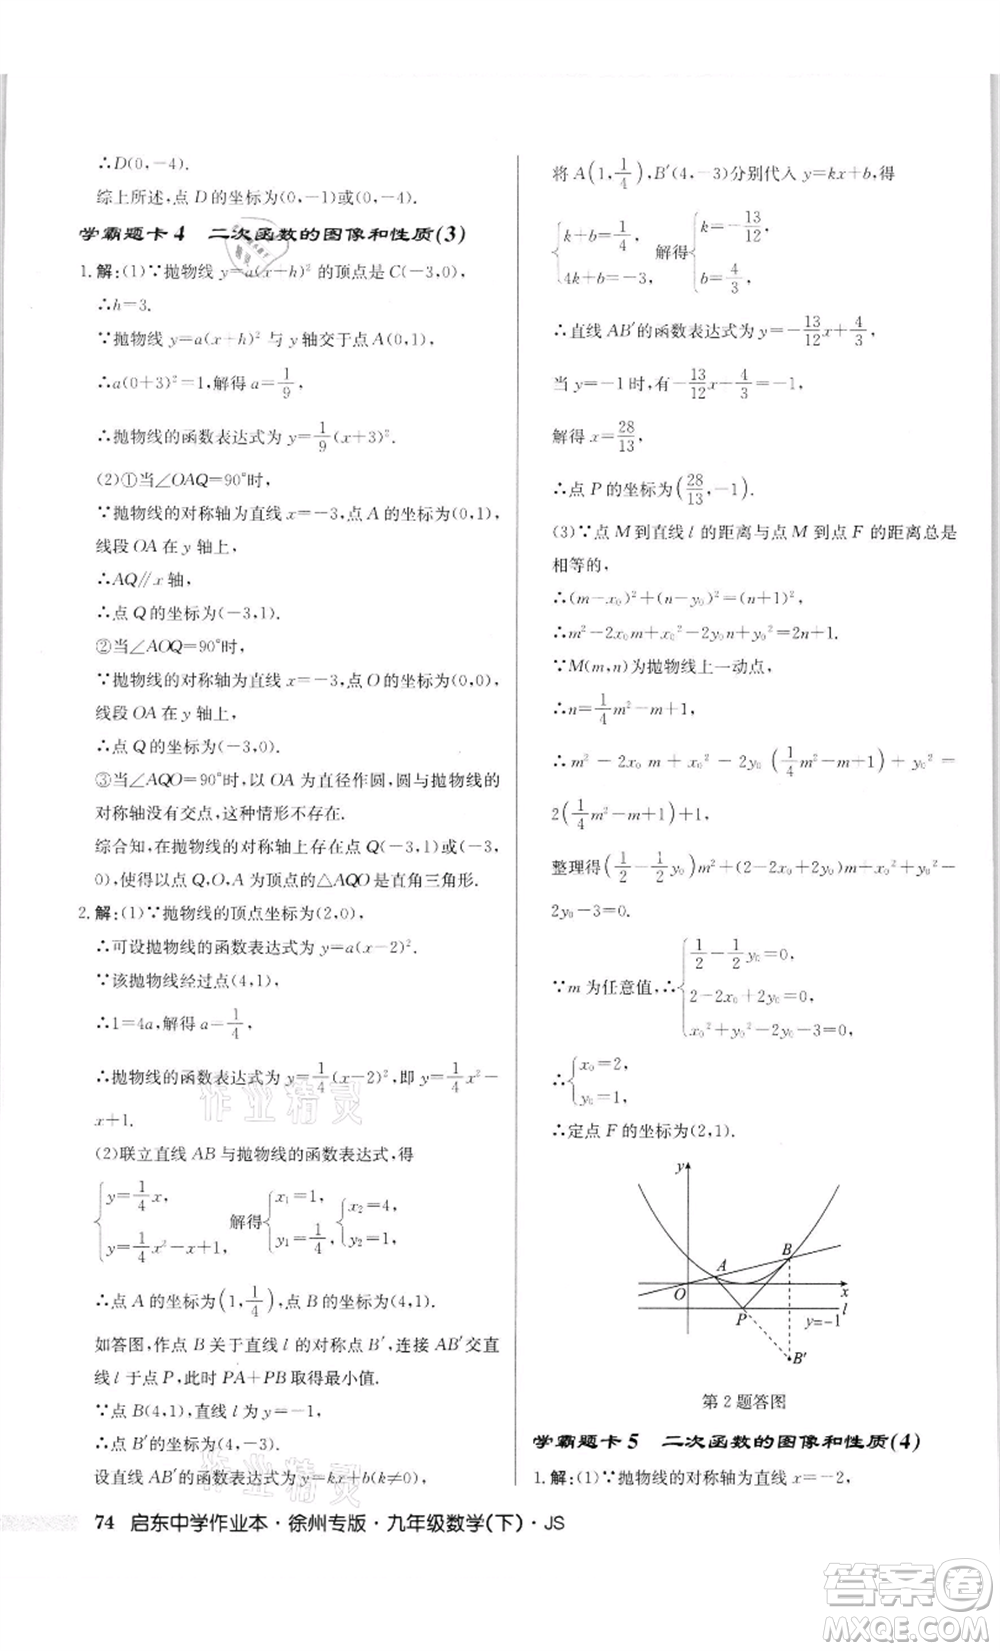 ∴D(0,－4).
综上所述,点 D 的坐标为(0,－1)或(0,－4).
学霸题卡 4　二次函数的图像和性质(3)
1.解:(1)∵抛物线 y=a(x+h)² 的顶点是 C(－3,0),
∴h=3.
∵抛物线 y=a(x+h)² 与 y 轴交于点 A(0,1),
∴a(0+3)²=1,解得 a=1/9,
∴抛物线的函数表达式为 y=1/9(x+3)².
(2)①当∠OAQ=90°时,
∵抛物线的对称轴为直线 x=－3,点 A 的坐标为(0,1),
线段 OA 在 y 轴上,
∴AQ∥x 轴,
∴点 Q 的坐标为(－3,1).
②当∠AOQ=90°时,
∵抛物线的对称轴为直线 x=－3,点 O 的坐标为(0,0),
线段 OA 在 y 轴上,
∴点 Q 的坐标为(－3,0).
③当∠AQO=90°时,以 OA 为直径作圆,圆与抛物线的
对称轴没有交点,这种情形不存在.
综合知,在抛物线的对称轴上存在点 Q(－3,1)或(－3,
0),使得以点 Q,O,A 为顶点的△AQO是直角三角形.
2.解:(1)∵抛物线的顶点坐标为(2,0),
∴可设抛物线的函数表达式为 y=a(x－2)².
∵该抛物线经过点(4,1),
∴1=4a,解得 a=1/4,
∴抛物线的函数表达式为 y=1/4(x－2)²,即 y=1/4x²－
x+1.
(2)联立直线 AB 与抛物线的函数表达式,得
{y=1/4x, y=1/4x²－x+1, 解得{x₁=1, y₁=1/4, {x₂=4, y₂=1,
∴点 A 的坐标为(1,1/4),点 B 的坐标为(4,1).
如答图,作点 B 关于直线 l 的对称点 B′,连接 AB′交直
线 l 于点 P,此时 PA+PB 取得最小值.
∵点 B(4,1),直线 l 为 y=－1,
∴点 B′的坐标为(4,－3).
设直线 AB′的函数表达式为 y=kx+b(k≠0),
将 A(1,1/4),B′(4,－3)分别代入 y=kx+b,得
{k+b=1/4, 4k+b=－3, 解得{k=－13/12, b=4/3,
∴直线 AB′的函数表达式为 y=－13/12x+4/3,
当 y=－1时,有－13/12x+4/3=－1,
解得 x=28/13,
∴点 P 的坐标为(28/13,－1).
(3)∵点 M 到直线 l 的距离与点 M 到点 F 的距离总是
相等的,
∴(m－x₀)²+(n－y₀)²=(n+1)²,
∴m²－2x₀m+x₀²－2y₀n+y₀²=2n+1.
∵M(m,n)为抛物线上一动点,
∴n=1/4m²－m+1,
∴m²－2x₀m+x₀²－2y₀(1/4m²－m+1)+y₀²=
2(1/4m²－m+1)+1,
整理得(1/2－1/2y₀)m²+(2－2x₀+2y₀)m+x₀²+y₀²－
2y₀－3=0.
∵m 为任意值,∴{1/2－1/2y₀=0, 2－2x₀+2y₀=0, x₀²+y₀²－2y₀－3=0,
∴{x₀=2, y₀=1,
∴定点 F 的坐标为(2,1).
y
A
B
O
x
P
l
y=－1
B′
第 2 题答图
学霸题卡 5　二次函数的图像和性质(4)
1.解:(1)∵抛物线的对称轴为直线 x=－2,
74 启东中学作业本·徐州专版·九年级数学(下)·JS
作业精灵
作业精灵
答案圈
MXQE.COM